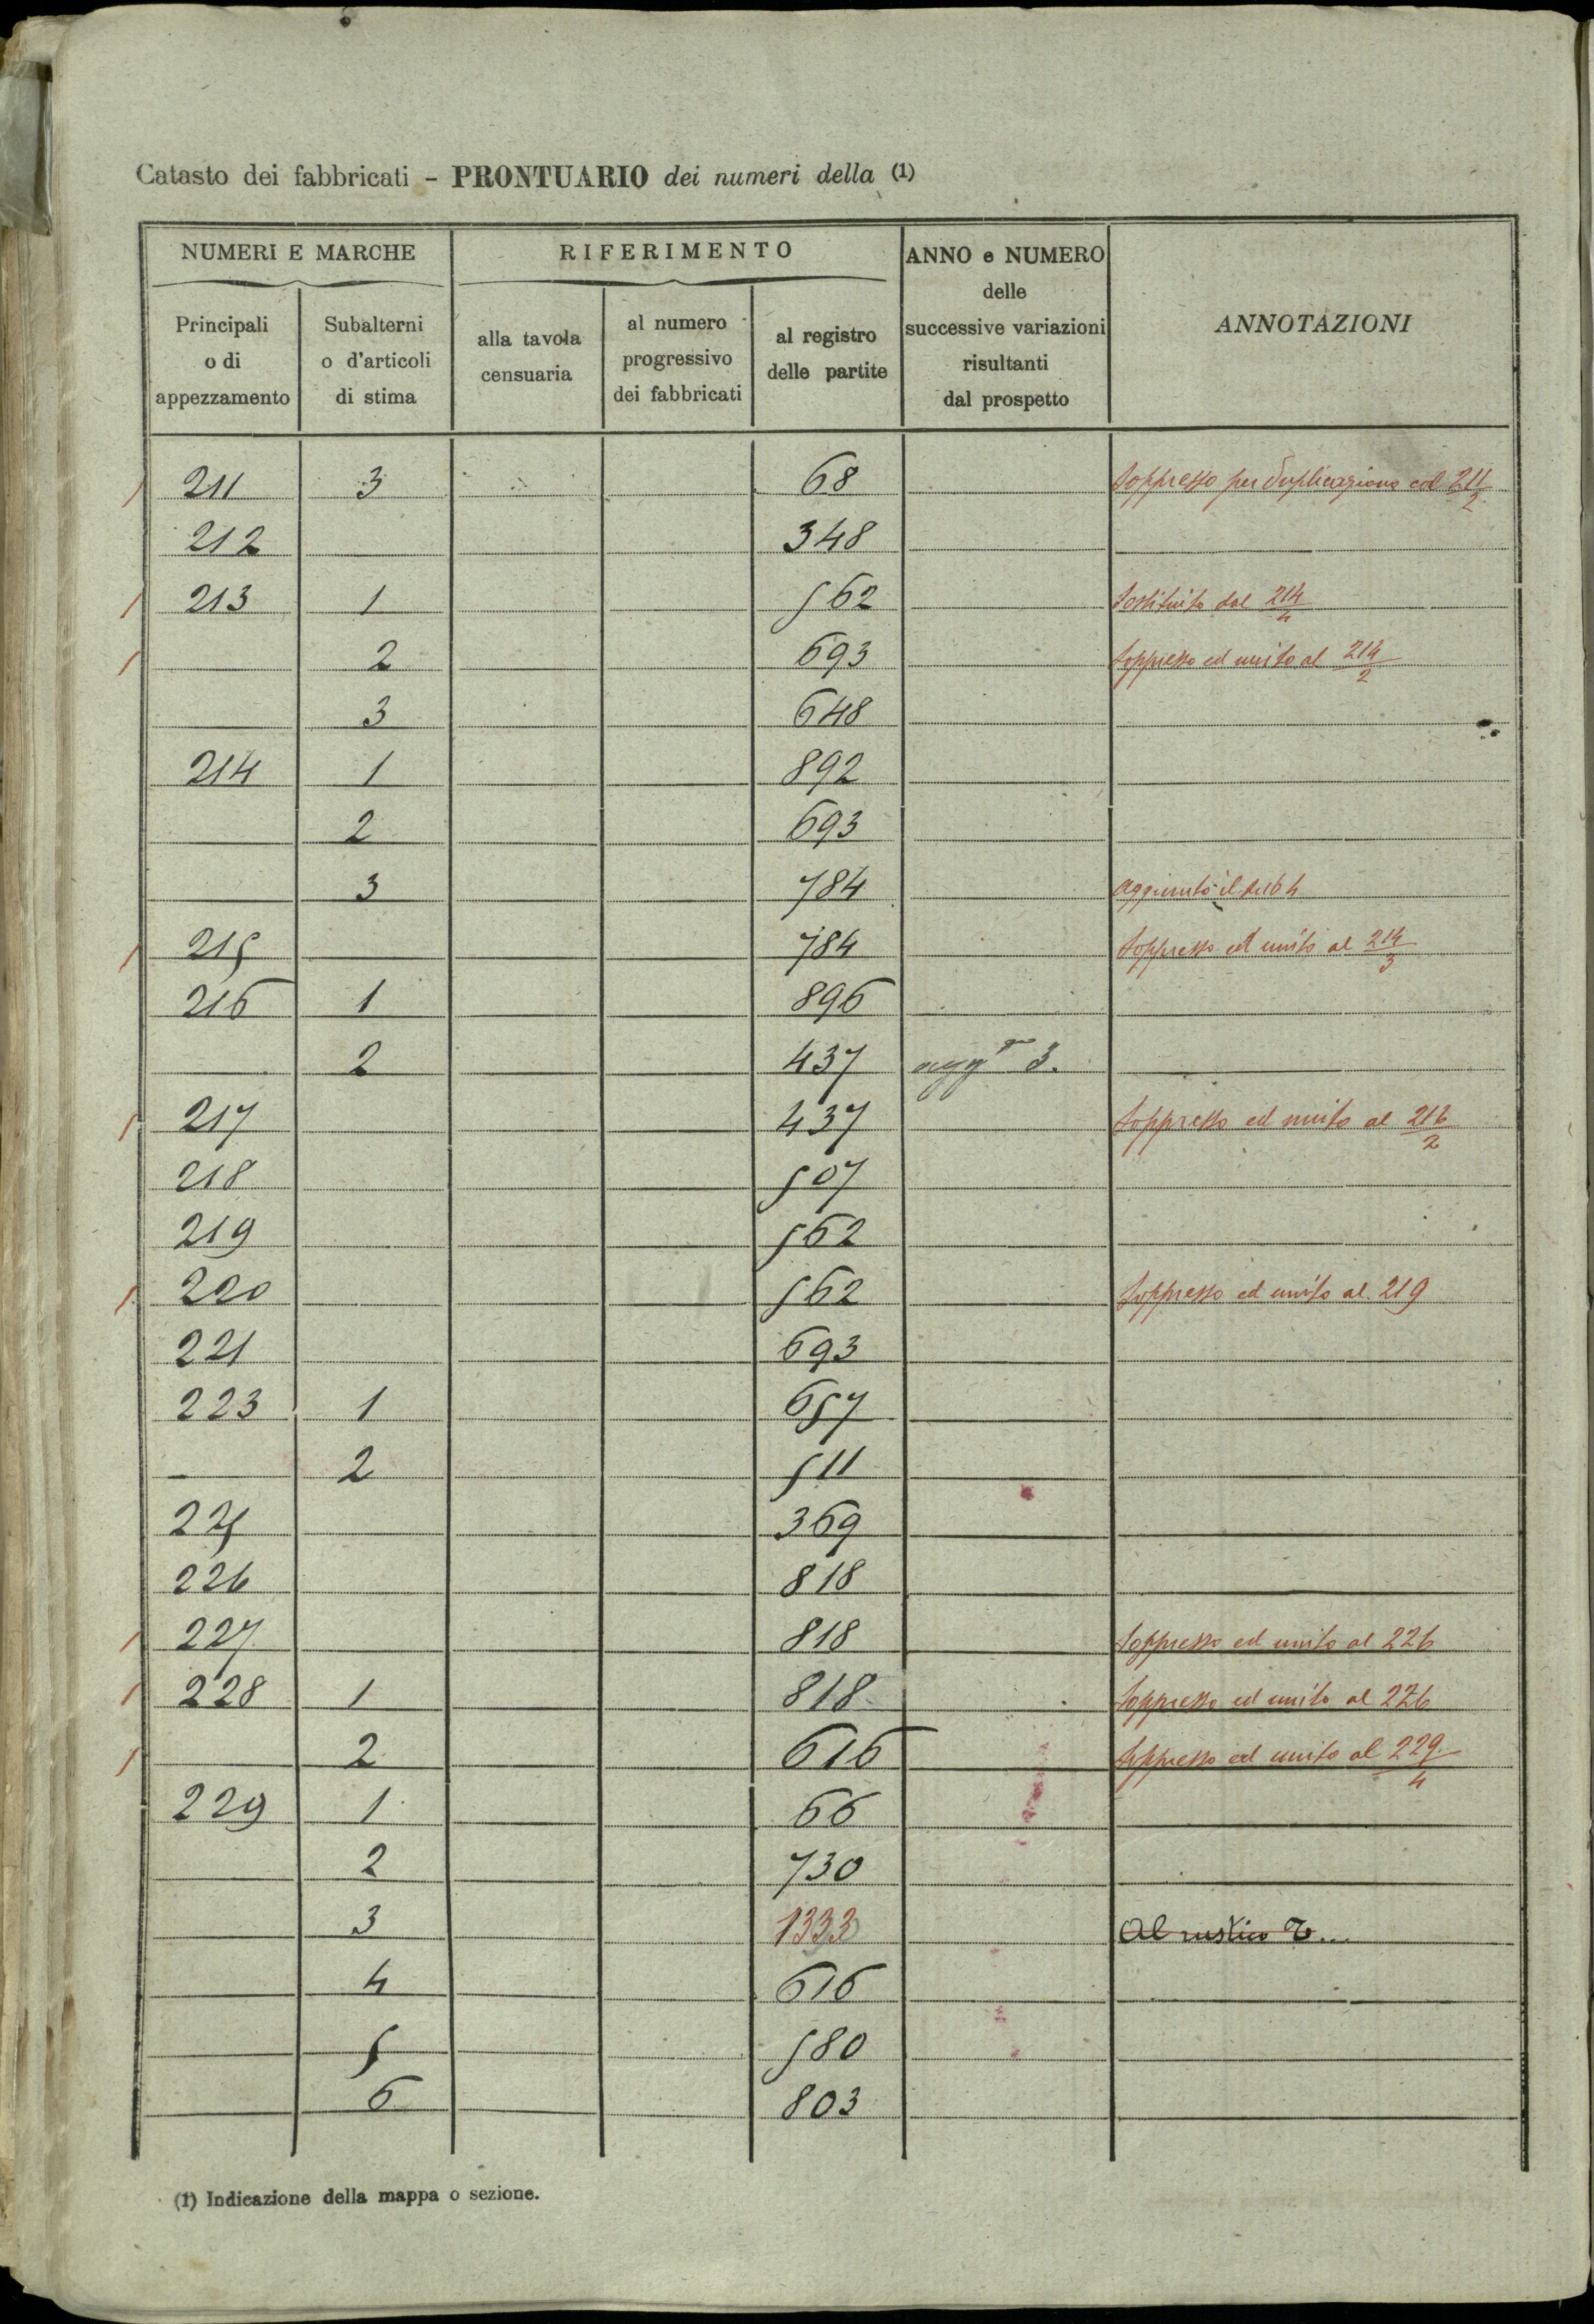 Catasto dei fabbricati - PRONTUARIO dei numeri della (1)
NUMERI E MARCHE RIFERIMENTO ANNO e NUMERO delle successive variazioni risultanti dal prospetto ANNOTAZIONI
Principali o di appezzamento Subalterni o d'articoli di stima alla tavola censuaria al numero progressivo dei fabbricati al registro delle partite
211 3 68 Soppresso per duplicazione col 211/2
212 348
213 1 562 Sostituito dal 214/4
2 693 Soppresso ed unito al 214/2
3 648
214 1 892
2 693
3 784 aggiunto il sub 4
215 784 Soppresso ed unito al 214/3
216 1 896
2 437 aggto 3.
217 437 Soppresso ed unito al 216/2
218 507
219 562
220 562 Soppresso ed unito al 219
221 693
223 1 657
2 511
225 369
226 818
227 818 Soppresso ed unito al 226
228 1 818 Soppresso ed unito al 226
2 616 Soppresso ed unito al 229/4
229 1 66
2 730
3 1333 Al rustico
4 616
5 580
6 803
(1) Indicazione della mappa o sezione.